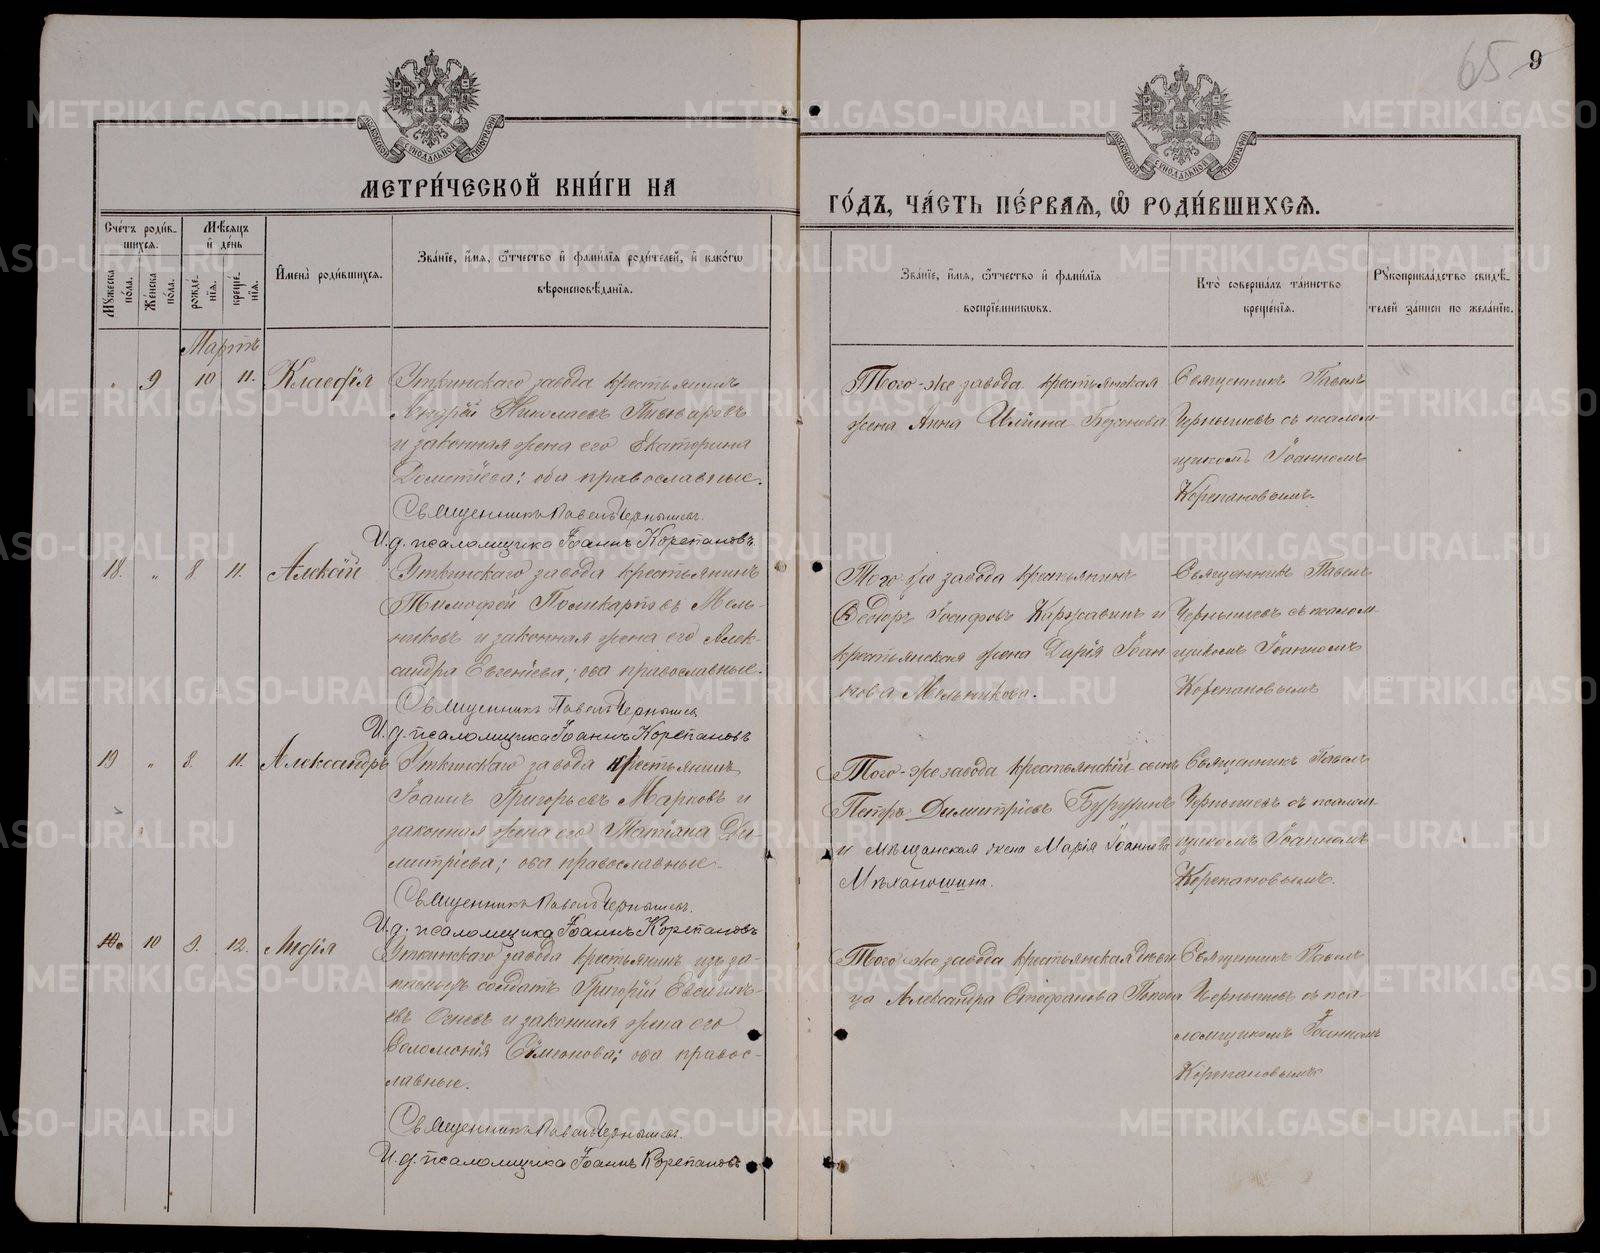 65
9
МОСКОВСКОЙ СѴНОДАЛЬНОЙ ТИПОГРАФІИ
МОСКОВСКОЙ СѴНОДАЛЬНОЙ ТИПОГРАФІИ
МЕТРИ́ЧЕСКОЙ КНИ́ГИ НА
ГО́ДЪ, ЧА́СТЬ ПЕ́РВАѦ, Ѡ РОДИ́ВШИХСѦ.
Сче́тъ роди́в-
шихся.
Мѣ́сяцъ
и҆ де́нь
Мꙋ́жеска по́ла.
Же́нска по́ла.
рожде́-нїя.
креще́-нїя.
И҆мена̀ роди́вшихся.
Зва́нїе, и҆́мя, ѻ҆́тчество и҆ фамилїя роди́телей, и҆ како́гѡ
вѣроисповѣ́данїя.
Зва́нїе, и҆́мя, ѻ҆́тчество и҆ фами́лїя
воспрїе́мникѡвъ.
Кто̀ соверша́лъ та́инство
креще́нїя.
Рꙋкоприкла́дство свидѣ́-
телей за́писи по жела́нїю.
Мартъ
" 9 10 11. Клавдія
Уткинскаго завода крестьянинъ
Андрей Николаевъ Пивоваровъ
и законная жена его Екатерина
Дометіева; оба православные.
Священникъ Павелъ Чернышевъ.
И. д. псаломщика Іоаннъ Корепановъ.
Того-же завода крестьянская
жена Анна Ильина
Священникъ Павелъ
Чернышевъ съ псалом-
щикомъ Іоанномъ
Корепановымъ.
18. " 8 11. Алексій
Уткинскаго завода крестьянинъ
Тимофей Поликарповъ Мель-
никовъ и законная жена его Алек-
сандра Евгеніева; оба православные.
Священникъ Павелъ Чернышев
И. д. псаломщика Іоаннъ Корепановъ
Того же завода крестьянинъ
Ѳеодоръ Іосифовъ Каржавинъ и
крестьянская жена Дарія Іоан
нова Мельникова.
Священникъ Павелъ
Чернышевъ съ псалом-
щикомъ Іоанномъ
Корепановымъ
19 " 8. 11. Александръ
Уткинскаго завода крестьянинъ
Іоаннъ Григорьевъ Марковъ и
законная жена его Татіана Ди-
митріева; оба православные.
Священникъ Павелъ Чернышевъ.
И. д. псаломщика Іоаннъ Корепановъ
Того-же завода крестьянскій сынъ
Петръ Димитріевъ Бурухинъ
и мѣщанская жена Марія Іоаннова
Мѣханошина.
Священникъ Павелъ
Чернышевъ съ псалом-
щикомъ Іоанномъ
Корепановымъ.
10 9. 12. Лидія
Уткинскаго завода крестьянинъ изъ за-
пасныхъ солдатъ Григорій Евсигнѣ-
евъ Осневъ и законная жена его
Соломонія Симеонова; оба правос-
лавные.
Священникъ Павелъ Чернышевъ.
И. д. псаломщика Іоаннъ Корепановъ
Того-же завода крестьянская дѣви
ца Александра Стефанова Попова
Священникъ Павелъ
Чернышевъ съ пса-
ломщикомъ Іоанномъ
Корепановымъ
METRIKI.GASO-URAL.RU